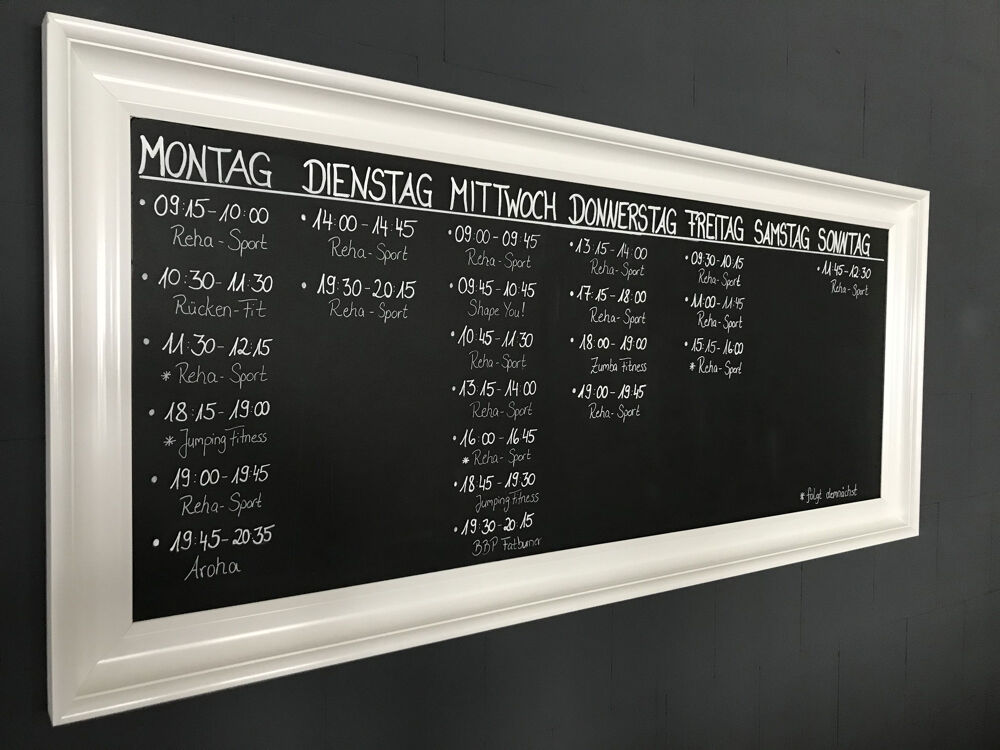 MONTAG
• 09:15-10:00
Reha-Sport
• 10:30-11:30
Rücken-Fit
• 11:30-12:15
* Reha-Sport
• 18:15-19:00
* Jumping Fitness
• 19:00-19:45
Reha-Sport
• 19:45-20:35
Aroha
DIENSTAG
• 14:00-14:45
Reha-Sport
• 19:30-20:15
Reha-Sport
MITTWOCH
• 09:00-09:45
Reha-Sport
• 09:45-10:45
Shape You!
• 10:45-11:30
Reha-Sport
• 13:15-14:00
Reha-Sport
• 16:00-16:45
* Reha-Sport
• 18:45-19:30
Jumping Fitness
• 19:30-20:15
BBP Fatburner
DONNERSTAG
• 13:15-14:00
Reha-Sport
• 17:15-18:00
Reha-Sport
• 18:00-19:00
Zumba Fitness
• 19:00-19:45
Reha-Sport
FREITAG
• 09:30-10:15
Reha-Sport
• 11:00-11:45
Reha-Sport
• 15:15-16:00
* Reha-Sport
SAMSTAG
SONNTAG
• 11:45-12:30
Reha-Sport
* folgt demnächst